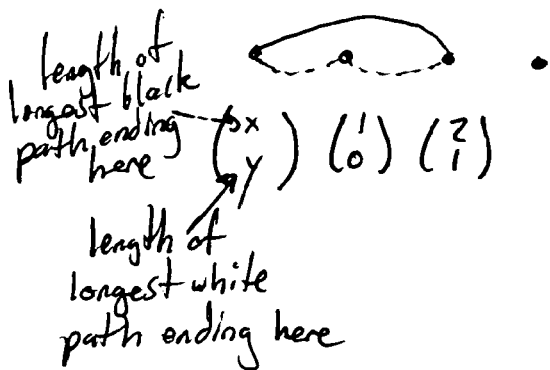 length of
longest black
path ending
here
( x y ) ( 1 0 ) ( 2 1 )
length of
longest white
path ending here